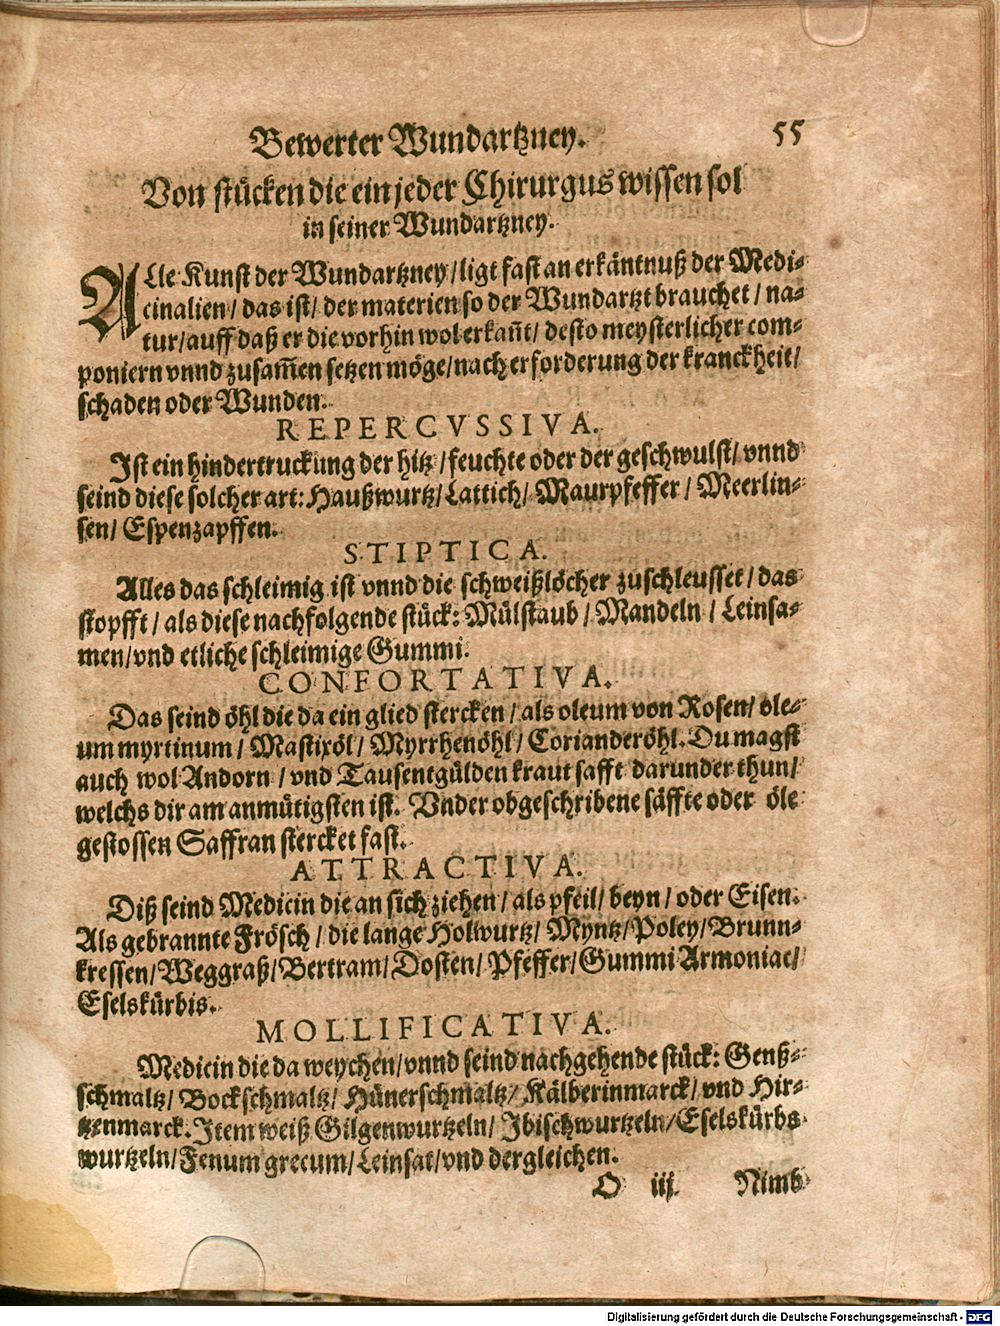 Bewerter Wundartzney. 55
Von stücken die ein jeder Chirurgus wissen sol
in seiner Wundartzney.
ALle Kunst der Wundartzney/ligt fast an erkäntnuß der Medi-
cinalien/ das ist/ der materien so der Wundartzt brauchet / na-
tur/auff daß er die vorhin wol erkañt/ desto meysterlicher com-
poniern vnnd zusam̃en setzen möge/nach erforderung der kranckheit/
schaden oder Wunden.
REPERCVSSIVA.
Ist ein hindertruckung der hitz /feuchte oder der geschwulst/ vnnd
seind diese solcher art: Haußwurtz/Lattich/ Maurpfeffer / Meerlin-
sen/ Espenzapffen.
STIPTICA.
Alles das schleimig ist vnnd die schweißlöcher zuschleusset / das
stopfft / als diese nachfolgende stück: Mülstaub / Mandeln / Leinsa-
men/vnd etliche schleimige Gummi.
CONFORTATIVA.
Das seind öhl die da ein glied stercken / als oleum von Rosen/ ole-
um myrtinum / Mastixöl/ Myrrhenöhl/ Corianderöhl. Du magst
auch wol Andorn / vnd Tausentgülden kraut safft darunder thun/
welchs dir am anmütigsten ist. Vnder obgeschribene säffte oder öle
gestossen Saffran stercket fast.
ATTRACTIVA.
Diß seind Medicin die an sich ziehen/ als pfeil/ beyn / oder Eisen.
Als gebrannte Frösch / die lange Holwurtz/ Myntz/Poley/Brunn-
kressen/Weggraß/Bertram/Dosten/ Pfeffer/Gummi Armoniac/
Eselskürbis.
MOLLIFICATIVA.
Medicin die da weychen/vnnd seind nachgehende stück: Genß-
schmaltz/ Bockschmaltz/ Hünerschmaltz/ Kälberinmarck/ vnd Hir-
tzenmarck. Item weiß Gilgenwurtzeln/ Ibischwurtzeln/Eselskürbs
wurtzeln/Fenum grecum/Leinsat/vnd dergleichen.
O iij. Nimb
Digitalisierung gefördert durch die Deutsche Forschungsgemeinschaft - DFG